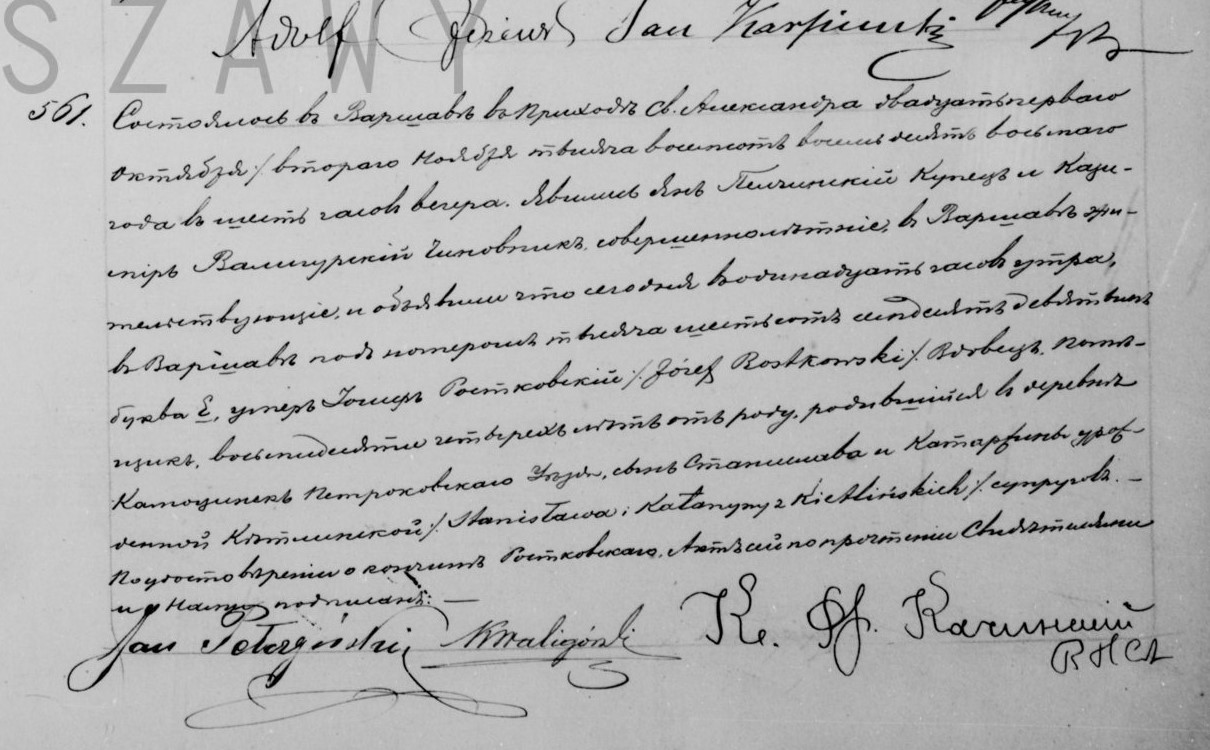 SZAWY
Adolf Jan Karpiński
561. Состоялось въ Варшавѣ въ Приходѣ Св. Александра двадцать перваго
Октября /: втораго Ноября тысяча восемьсотъ восемьдесятъ восьмаго
года въ шесть часовъ вечера. Явились Янъ Пелчинскій Купецъ и Кази-
міръ Валигурскій Чиновникъ, совершеннолѣтніе, въ Варшавѣ жи-
тельствующіе, и объявили что сегодня въ одинадцать часовъ утра,
въ Варшавѣ подъ номеромъ тысяча шестьсотъ семдесятъ девятымъ
буква Е, умеръ Іосифъ Ростковскій /: Józef Rostkowski :/ Вдовецъ, Помѣ-
щикъ, восьмидесяти четырехъ лѣтъ отъ роду, родившійся въ деревнѣ
Камоцинекъ Петроковскаго Уѣзда, сынъ Станислава и Катаржины урож-
денной Кѣтлинской /: Stanisława i Katarzyny z Kietlińskich :/ супруговъ. —
По удостовѣреніи о кончинѣ Ростковскаго, Актъ сей по прочтеніи Свидѣтелями
и Нами подписанъ: —
Jan Pełczyński KWaligórski Кс. Фр. Качинский